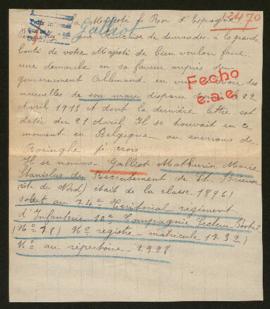 Majesté le Roi d'Espagne
Galleot
24470
de demander à la grande
bonté de votre Majesté de bien vouloir faire
une demande en sa faveur auprès du
gouvernement Allemand, en vue
nouvelles de son mari disparu 22
Avril 1915 et dont la dernière lettre est
datée du 21 Avril. Il se trouvait en ce
moment en Belgique, au environs de
je crois
Fecho
e.a.e.
Il se nomme Galleot Mathurin Marie
Stanislas du Recrutement de St. Brieuc
(côte du Nord) était de la classe 1896
soldat au 74e Territorial régiment
d'Infanterie 10e Compagnie Secteur Postal
No registre matricule 1732
No au répertoire 2928